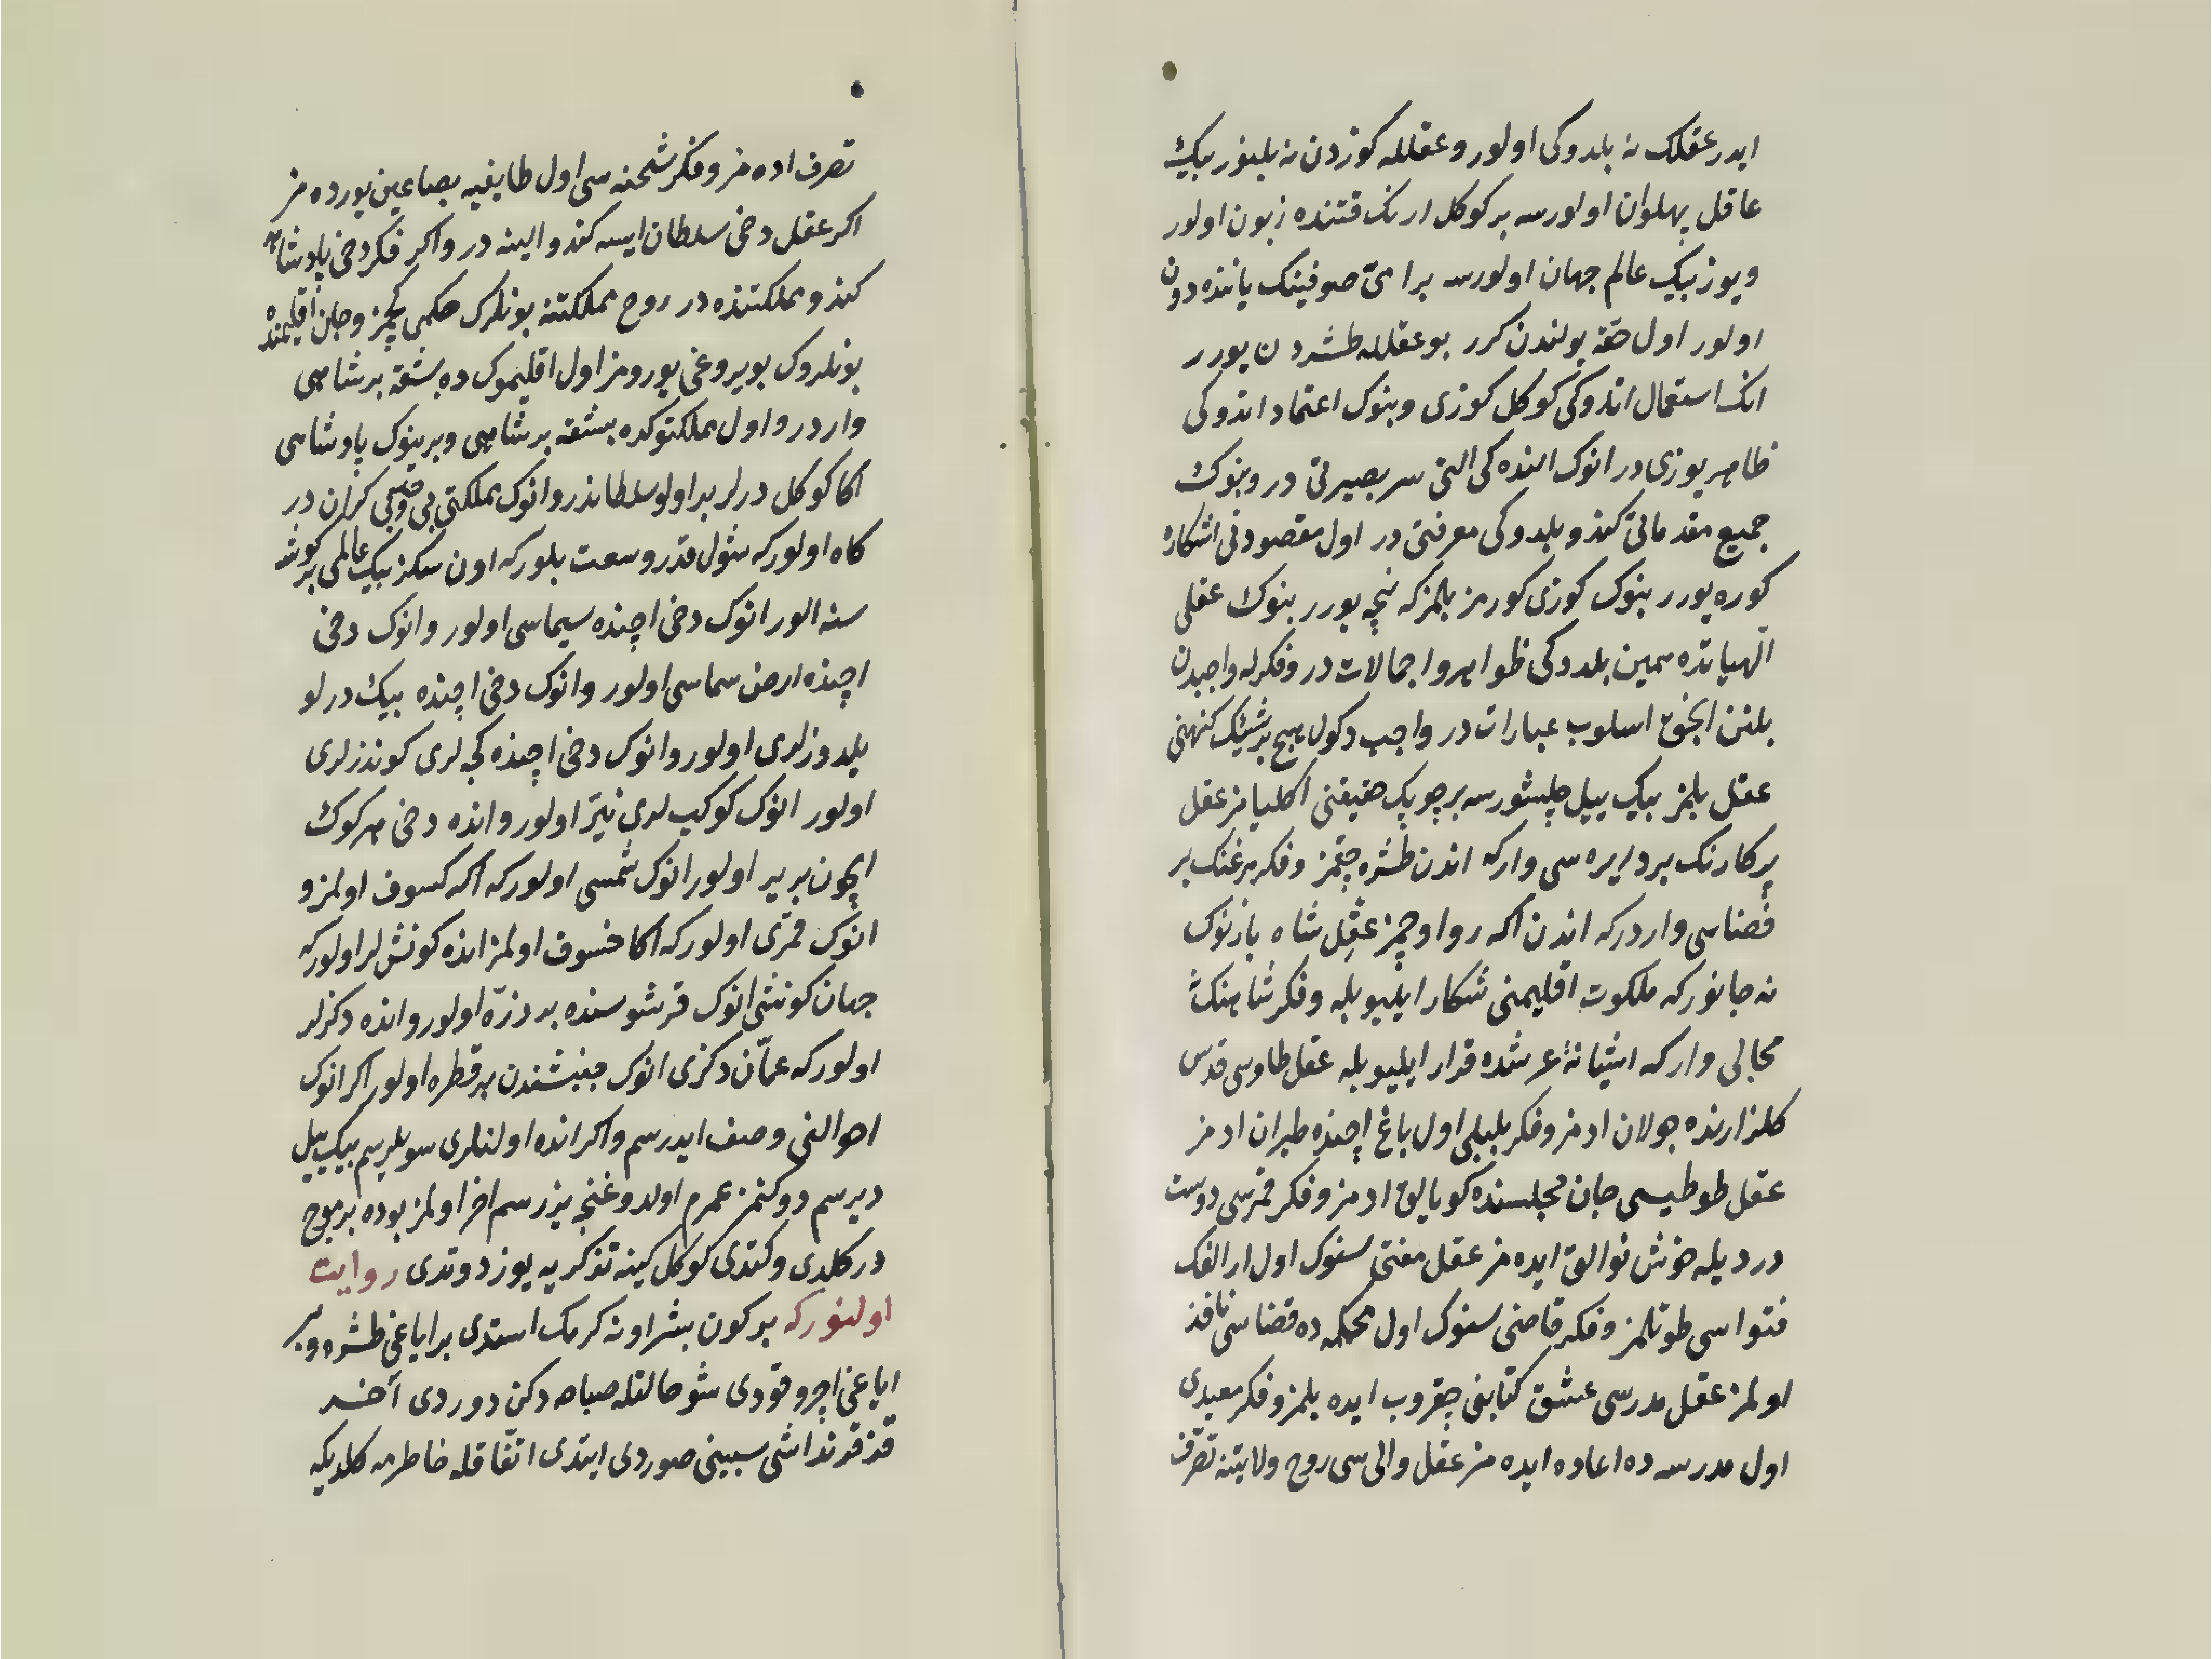 ايدر عقلك نه بلدوكى اولور و عقلله كوزدن نه بلينور بيك
عاقل پهلوان اولورسه بر كوكل ارنك قتنده زبون اولور
ويوز بيك عالم جهان اولورسه بر امىّ صوفينك ياننده دون
اولور اول حقّه يولندن كرر بو عقلله طشردن يورر
انك استعمال اتدوكى كوكل كوزى وبنوك اعتماد اتدوكى
ظاهر يوزى در انوك النده كى التى سر بصيرتى در وبنوك
جميع مقدماتى كندو بلدوكى معرفتى در اول مقصودنى اشكاره
كوره يورر بنوك كوزى كورمز بلمز كه نيجه يورر بنوك عقلى
الهياتده همين بلدوكى ظواهر واجمالات در وفكرله واجبدن
بلنن انجق اسلوب عبارات در واجب دكول هيچ بر شيئك كنهنى
عقل بلمز بيك ييل چلشورسه بر چوپك حقيقتنى اكليامز عقل
پركارنك بر دايره سى وار كه اندن طشره چقمز وفكر مرغنك بر
فضاسى واردر كه اندن اكه روا اوچمز عقل شاه بازنوك
نه جانور كه ملكوت اقليمنى شكار ايليو بله وفكر شاهنك
مجالى وار كه اشيانهٔ عرشده قرار ايليو بله عقل طاوسى قدس
كلزارنده جولان ادمز وفكر بلبلى اول باغ اچنده طيران ادمز
عقل طوطيسى جان مجلسنده كويالق ادمز وفكر قمرسى دوست
درديله خوش نوالق ايده مز عقل مفتى سنوك اول ارالقك
فتواسى طوتلمز وفكر قاضى سنوك اول محكمه ده قضاسى نافذ
اولمز عقل مدرسى عشق كتابنى چقروب ايده بلمز وفكر معيدى
اول مدرسه ده اعاده ايده مز عقل والى سى روح ولايتنه تصرّف
تصرف اده مز وفكر شحنه سى اول طايفيه بصاعين يورده مز
اكر عقل دخى سلطان ايسه كندو الينه در واكر فكر دخى پادشاه
كندو مملكتنده در روح مملكتنه بونلرك حكمى كچمز وجان اقليمنده
بونلروك بويروغى يورومز اول اقليموك ده بشقه بر شاهى
واردر واول مملكتوكده بشقه بر شاهى وبر بيوك پادشاهى
اكا كوكل درلر بر اولو سلطاندر وانوك مملكتى بى كران در
كاه اولور كه شول قدر وسعت بلور كه اون سكز بيك عالمى بر كوشه
سنه الور انوك دخى اچنده سيماسى اولور وانوك دخى
اچنده ارض سماسى اولور وانوك دخى اچنده بيك درلو
يلدوزلرى اولور وانوك دخى اچنده كجه لرى كوندزلرى
اولور انوك كوكب لرى نيّر اولور وانده دخى هر كوك
ايچون بر ير اولور انوك شمسى اولور كه اكه كسوف اولمز و
انوك قمرى اولور كه اكا خسوف اولمز انده كونش لر اولور كه
جهان كونشى انوك قرشوسنده بر ذرّه اولور وانده دكزلر
اولور كه عمّان دكزى انوك جنبشندن بر قطره اولور اكر انوك
احوالنى وصف ايدرسم واكر انده اولنلرى سويلرسم بيك ييل
ديرسم دوكنمز عمرم اولدوغنجه يزرسم اخر اولمز بوده بر موج
در كلدى وكتدى كوكل كينه تذكريه يوز دوتدى روايت
اولنور كه بر كون بشر اونه كرمك استدى بر اياغى طشره وبر
اياغى اچرو قودى شو حالتله صباحه دكن دوردى آخر
قز قرنداشى سببينى صوردى ايتدى اتّفاقله خاطرمه كلديكه